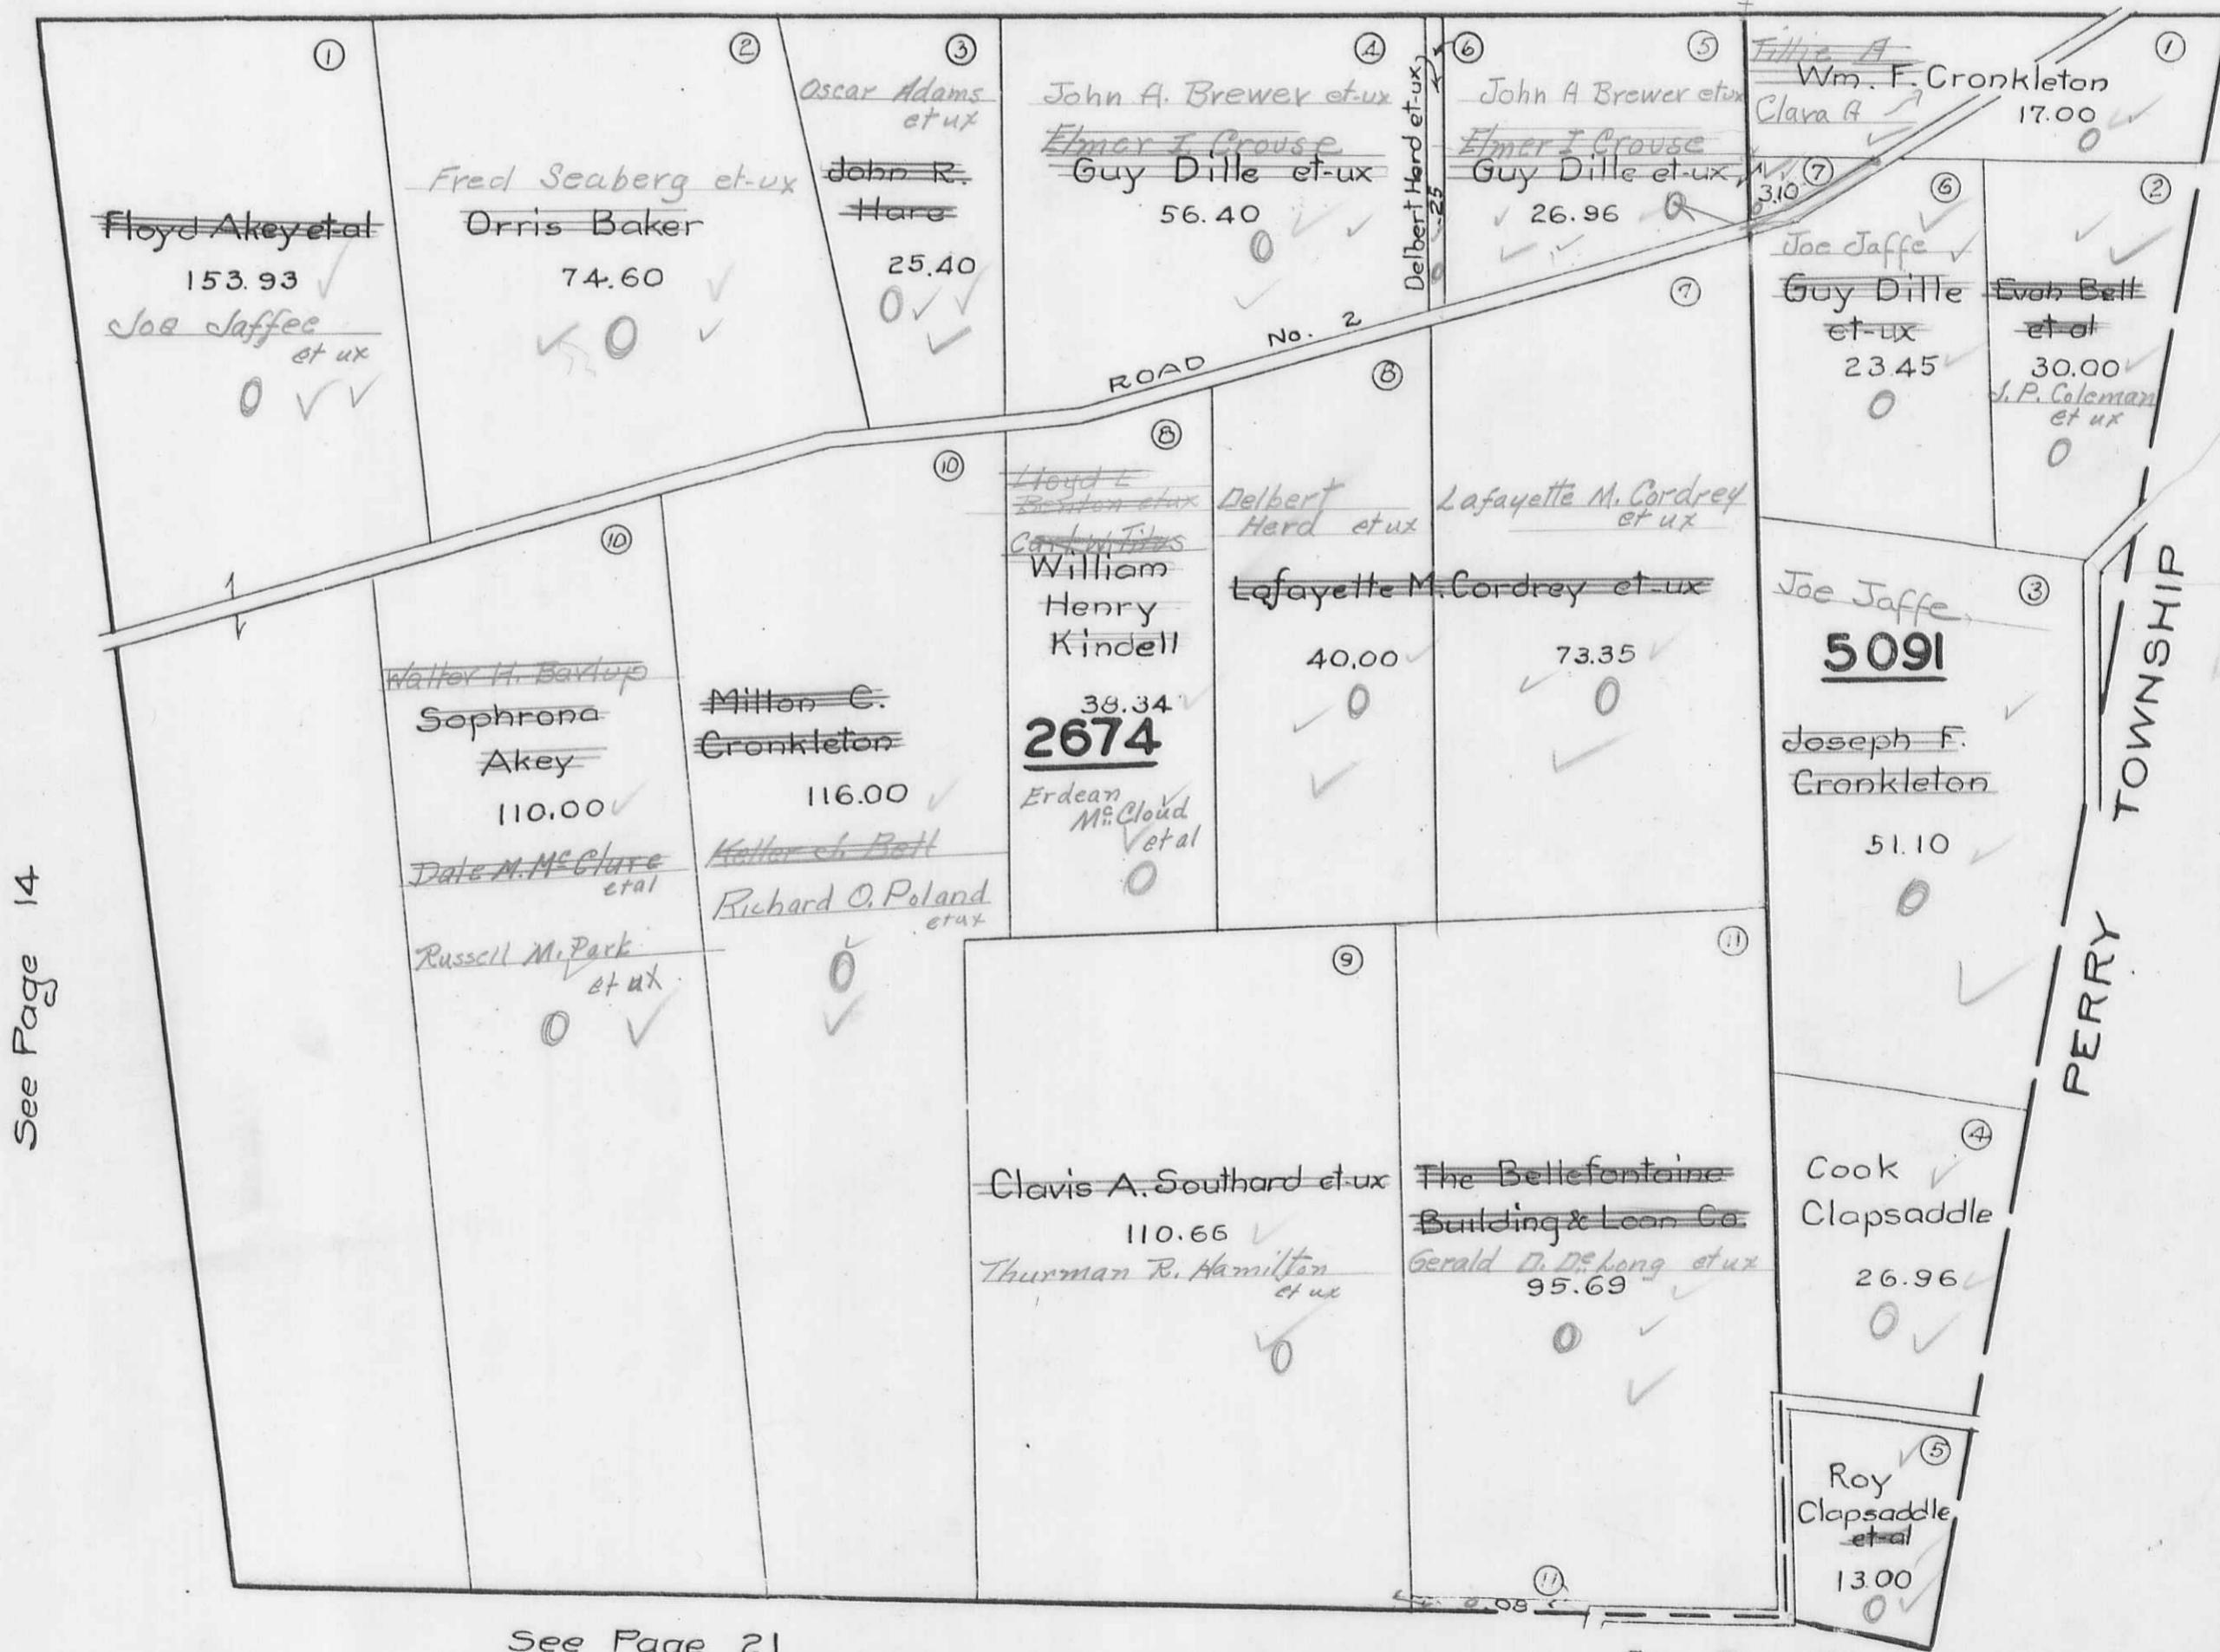 ①
Floyd Akey et al
153.93
Joe Jaffee
et ux
0
②
Fred Seaberg et-ux
Orris Baker
74.60
0
③
Oscar Adams
et ux
John R.
Hare
25.40
0
④
John A. Brewer et-ux
Elmer I. Crouse
Guy Dille et-ux
56.40
0
⑥
Delbert Herd et-ux
.25
0
⑤
John A Brewer et ux
Elmer I Crouse
Guy Dille et-ux
26.96
0
①
Tillie A
Wm. F. Cronkleton
Clara A
17.00
0
⑦
3.10
0
⑥
Joe Jaffe
Guy Dille
et-ux
23.45
0
②
Evah Bell
et al
30.00
J. P. Coleman
et ux
0
ROAD No. 2
⑩
Walter H. Barlup
Sophrona
Akey
110.00
Dale M. McClure
et al
Russell M. Park
et ux
0
⑩
Milton C.
Cronkleton
116.00
Keller J. Bell
Richard O. Poland
et ux
0
⑧
Lloyd E
Benton et ux
Carl W. Titus
William
Henry
Kindell
38.34
2674
Erdean
McCloud
et al
0
⑧
Delbert
Herd et ux
⑦
Lafayette M. Cordrey
et ux
Lafayette M. Cordrey et-ux
40.00
0
73.35
0
③
Joe Jaffe
5091
Joseph F.
Cronkleton
51.10
0
PERRY TOWNSHIP
See Page 14
⑨
Clavis A. Southard et-ux
110.66
Thurman R. Hamilton
et ux
0
⑪
The Bellefontaine
Building & Loan Co.
Gerald D. DeLong et ux
95.69
0
④
Cook
Clapsaddle
26.96
0
⑤
Roy
Clapsaddle
et-al
13.00
0
⑪
0.08
See Page 21